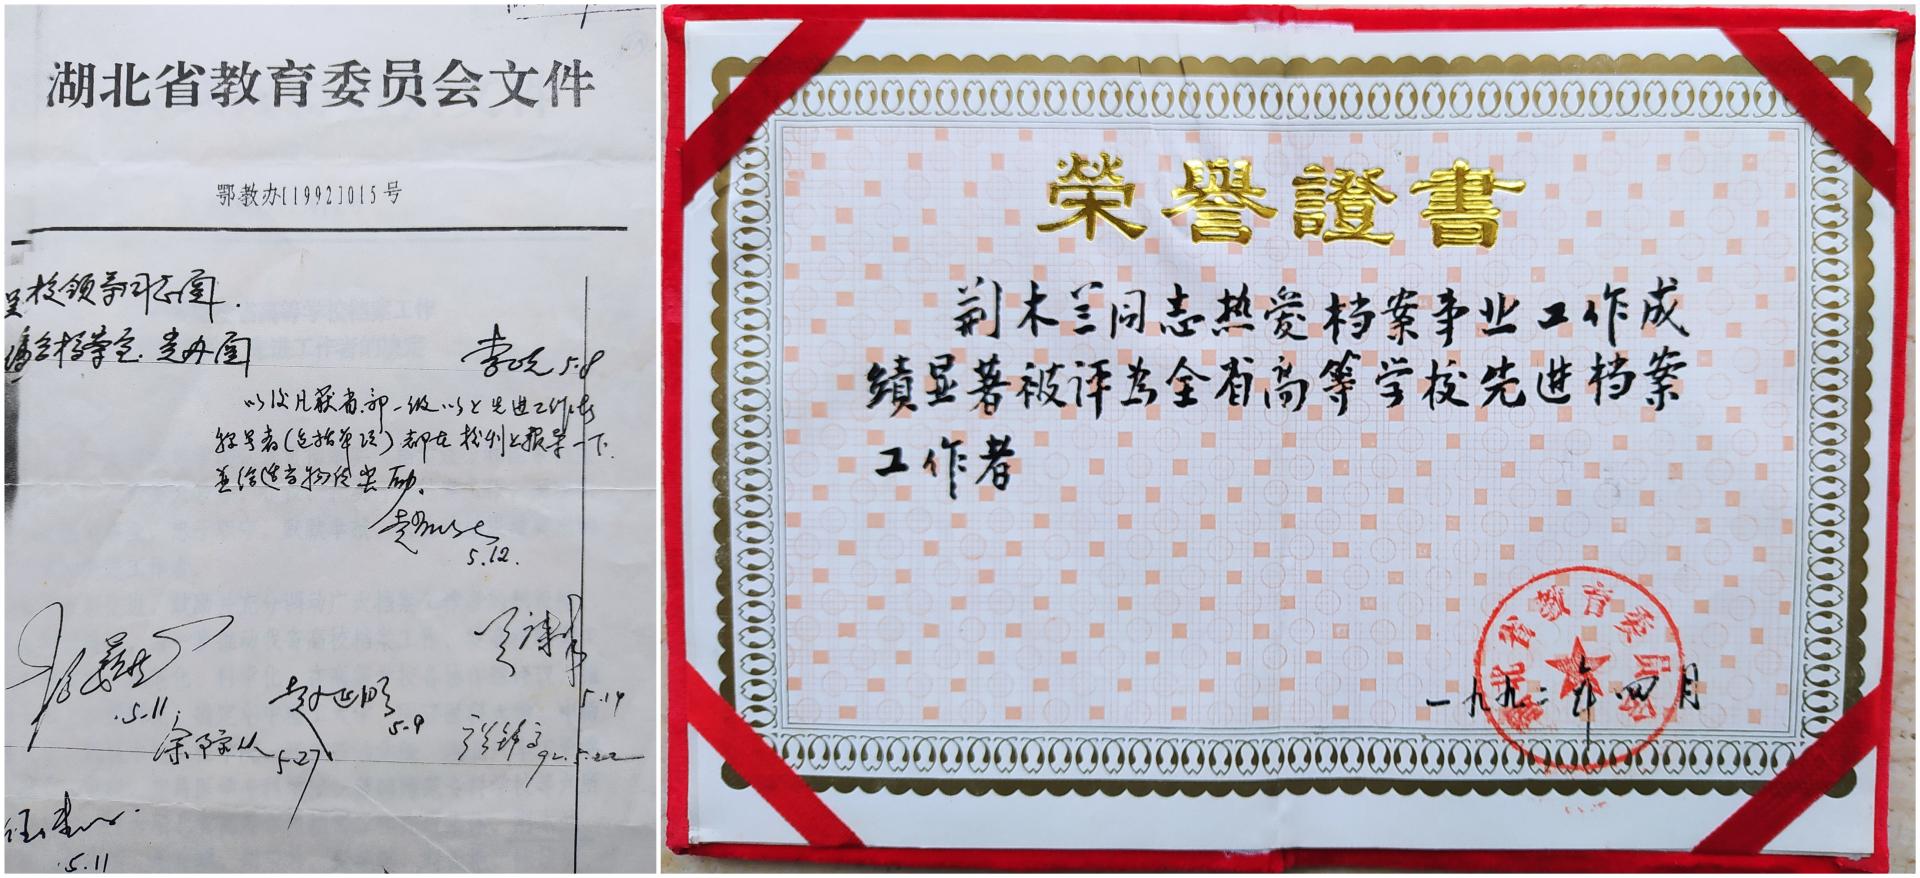 湖北省教育委员会文件
鄂教办[1992]015号
呈校领导同志阅.
档案室.党办阅
5.8
以后凡获省.部一级以上先进工作者
称号者(包括单项)都在校刊上报导一下.
并给适当物质奖励.
5.12.
5.11.
5.9
5.19
5.27
92.5.22
5.11
榮譽證書
荆木兰同志热爱档案事业工作成
绩显著被评为全省高等学校先进档案
工作者
湖北省教育委员会
一九九二年四月